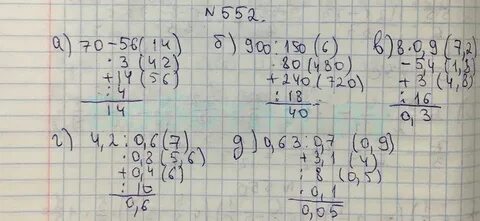 №552.
а) 70-56(14)
·3 (42)
+14 (56)
:4
14
б) 900:150(6)
·80(480)
+240(720)
:18
40
в) 8·0,9(7,2)
-54(1,8)
+3(4,8)
:16
0,3
г) 4,2:0,6(7)
·0,8(5,6)
+0,4(6)
:10
0,6
д) 0,63:0,7 (0,9)
+3,1 (4)
:8 (0,5)
·0,1
0,05